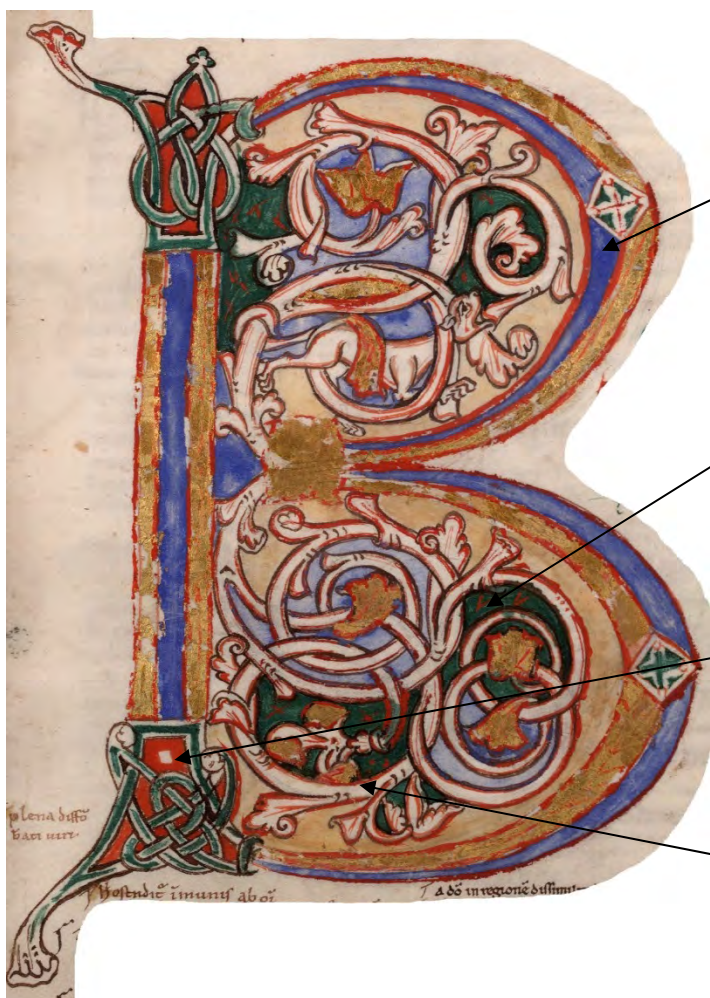 B
plena diffo
bati uiri
hostendit imunis ab oi
a dō in regionē dissimi